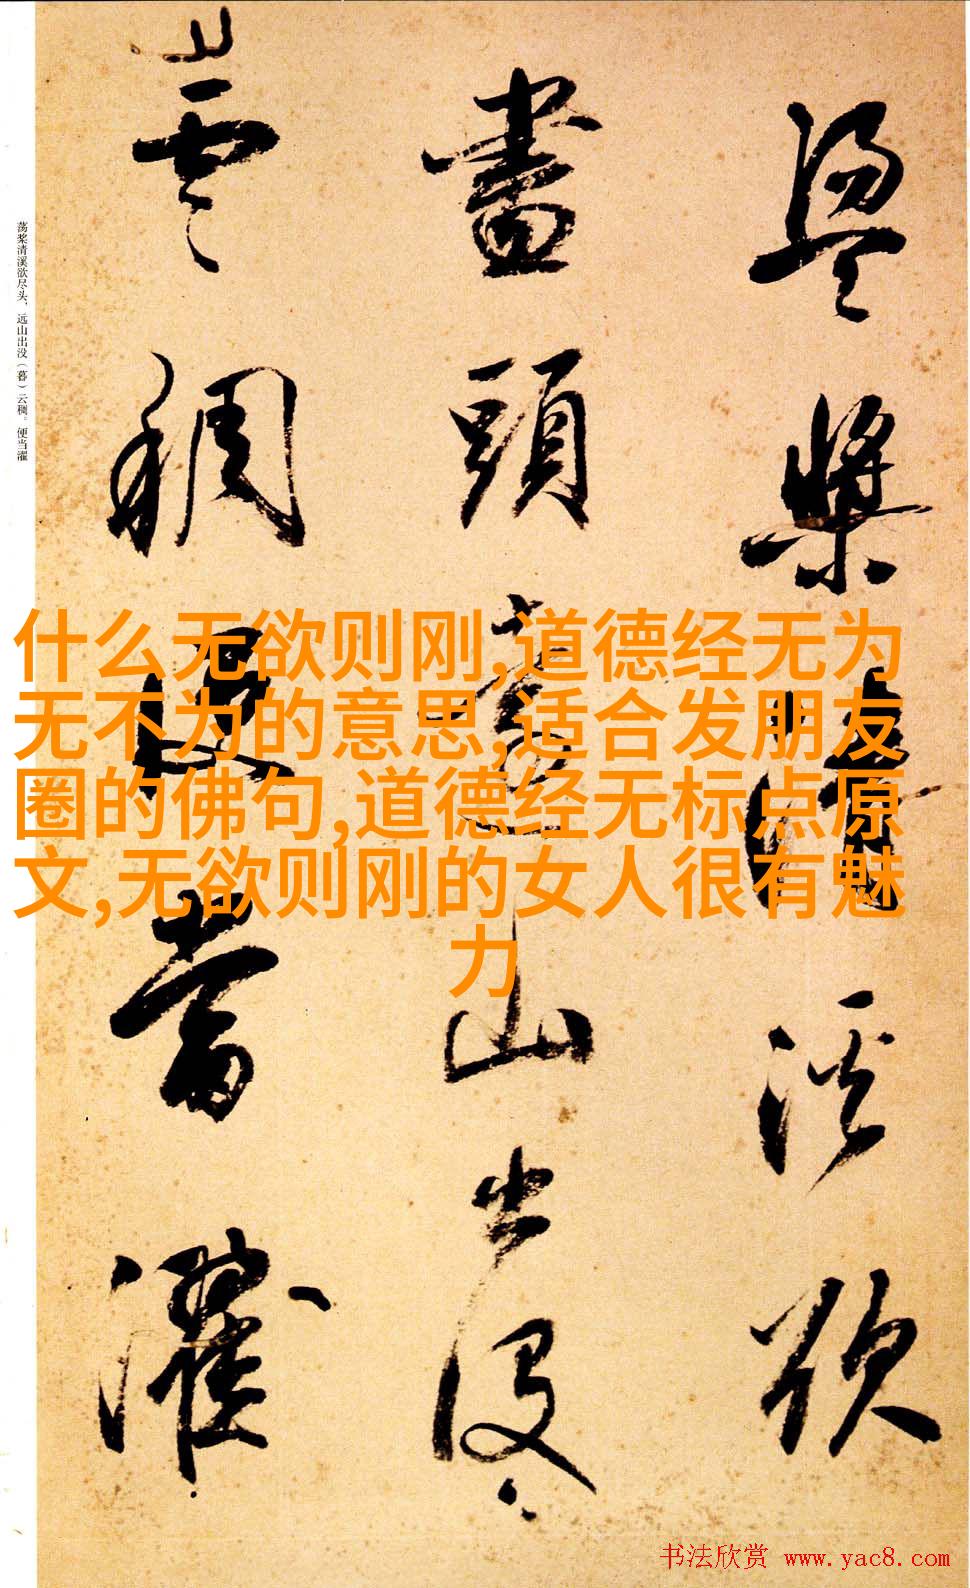 盪槳清溪欲
盡頭遠山出沒
雲稠便當濯
荡桨清溪欲尽头，远山出没（暮）云稠。便当濯
什么无欲则刚,道德经无为
无不为的意思,适合发朋友
圈的佛句,道德经无标点原
文,无欲则刚的女人很有魅
力
书法欣赏 www.yac8.com